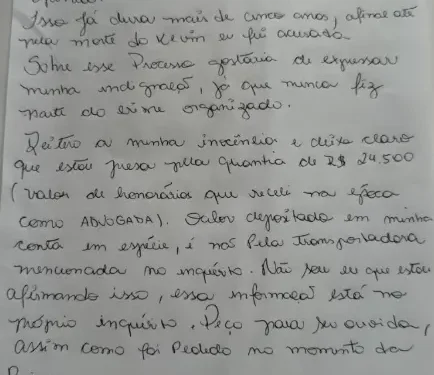 Isso já dura mais de cinco anos, afinal até
pela morte do Kevin eu fui acusada.
Sobre esse Processo gostaria de expressar
minha indignação, já que nunca fiz
parte do crime organizado.
Reitero a minha inocência e deixo claro
que estou presa pela quantia de R$ 24.500
(valor de honorários que recebi na época
como ADVOGADA). Valor depositado em minha
conta em espécie, e não Pela transportadora
mencionada no inquérito. Não sou eu que estou
afirmando isso, essa informação está no
próprio inquérito. Peço para ser ouvida,
assim como foi Pedido no momento da